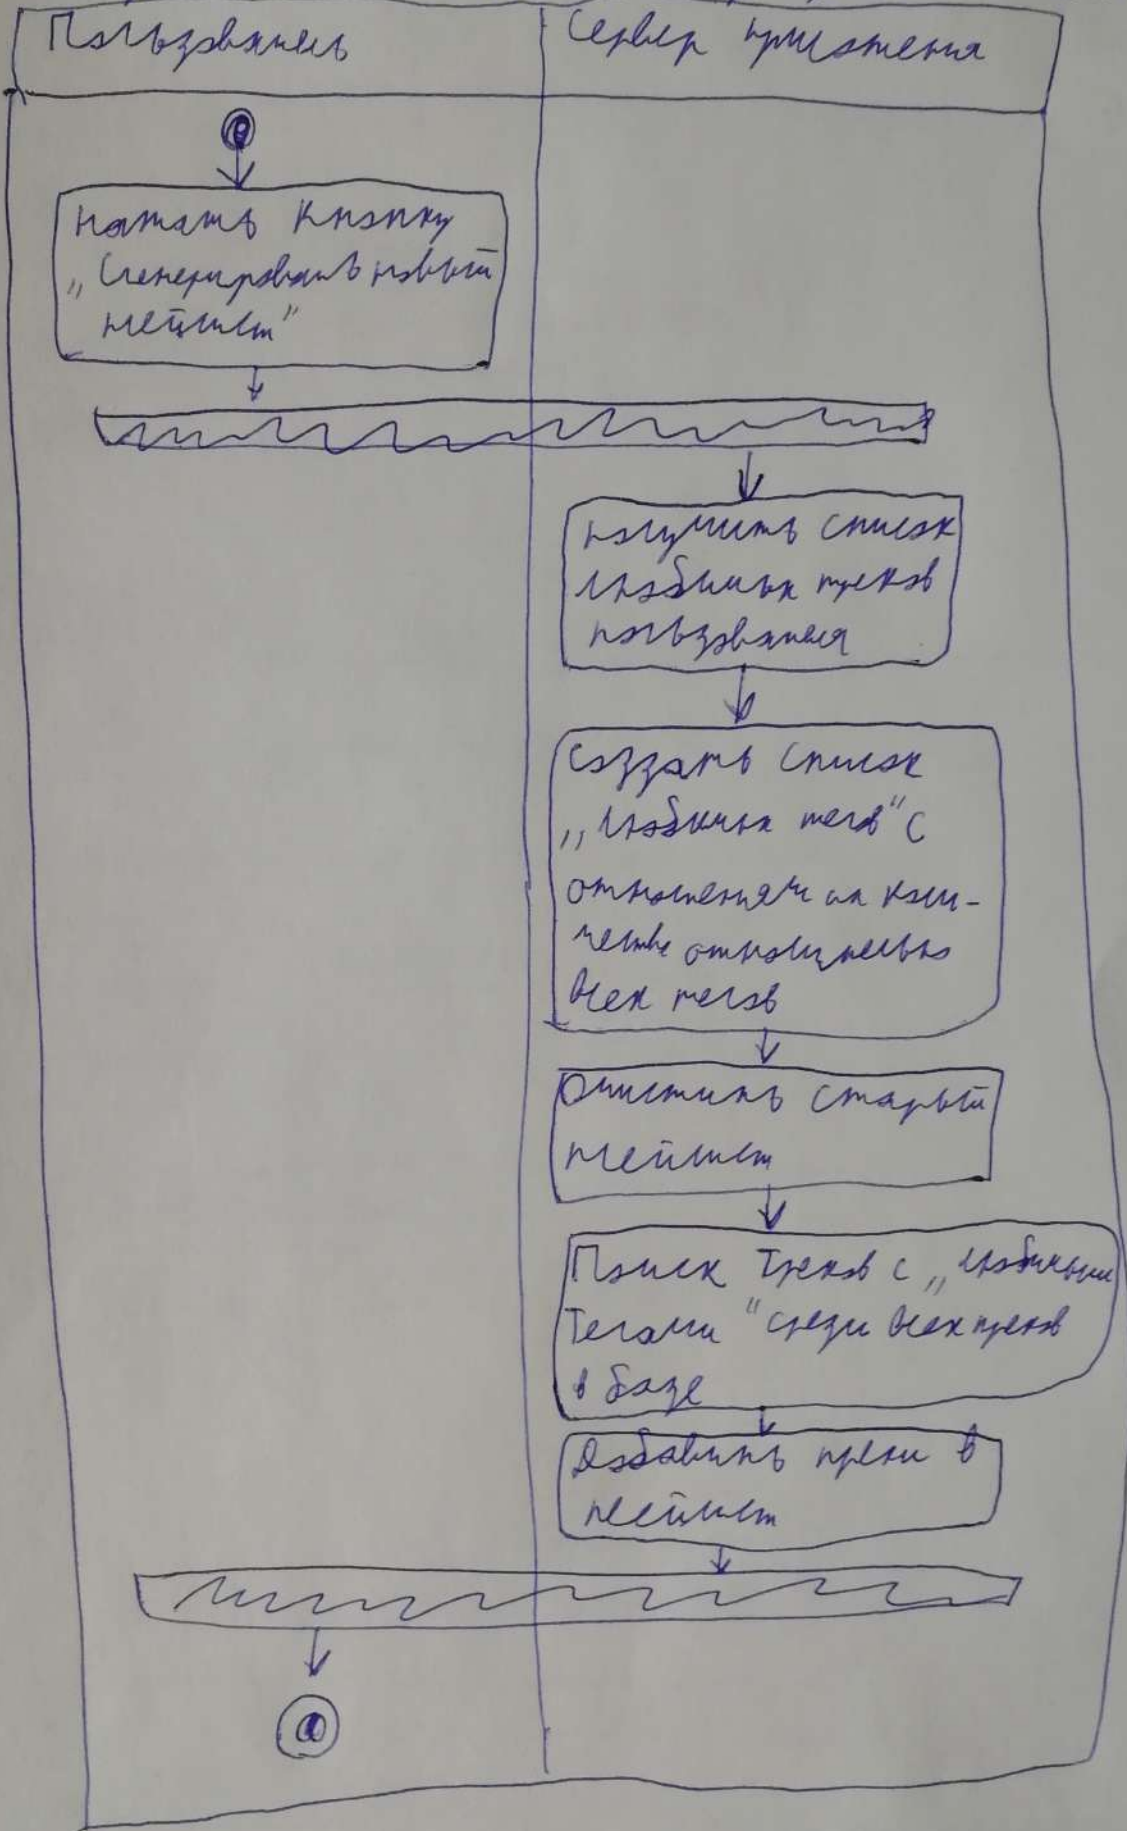 Пользователь
Сервер приложения
Нажать кнопку
„Сгенерировать новый
плейлист"
Получить список
любимых треков
пользователя
Создать список
„любимых тегов" с
отношениями их коли-
честве относительно
всех тегов
Очистить старый
плейлист
Поиск треков с „любимыми
тегами" среди всех треков
в базе
Добавить треки в
плейлист